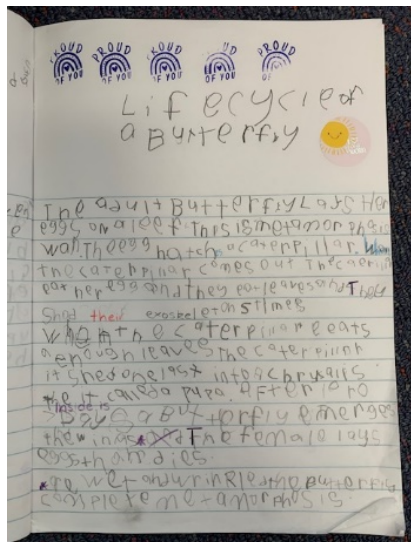 PROUD OF YOU PROUD OF YOU PROUD OF YOU OF YOU PROUD OF
Lifecycle of
a Butterfly
The adult Butterfly Lays Her
eggs on a leef. This is metamorphosis
hatch a caterpillar.
the caterpillar comes out The
eat her egg and they eat leaves and They
Shed their exoskeleton 5 times
When the caterpillar eats
enough leaves the caterpillar
it shed one last into a chrysalis
the it called a pupa. After 10
inside is
Days a Butterfly emerges
the wings The female lays
eggs then dies.
*are wet and wrinkle the butterfly
complete metamorphosis.